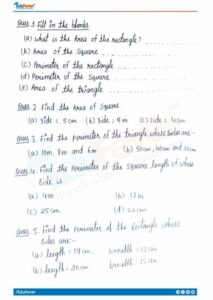 Ques 1 Fill in the blanks
(a) what is the Area of the rectangle? .........
(b) Area of the Square ..........
(c) Perimeter of the rectangle .........
(d) Perimeter of the Square ..........
(e) Area of the triangle ..........
Ques. 2. Find the Area of Square.
(a) side = 5cm (b) side = 9m (c) side = 4cm
Ques. 3. Find the Perimeter of the triangle whose sides are -
(a) 10m, 8m and 6m (b) 50cm, 40cm and 30cm
Ques. 4. Find the Perimeter of the Square length of whose
Side is
(a) 4m (b) 12m
(c) 25cm (d) 20cm
Ques. 5. Find the Perimeter of the Rectangle whose
Sides are:-
(a) length = 14cm, breadth = 12cm
(b) length = 20cm breadth 15cm